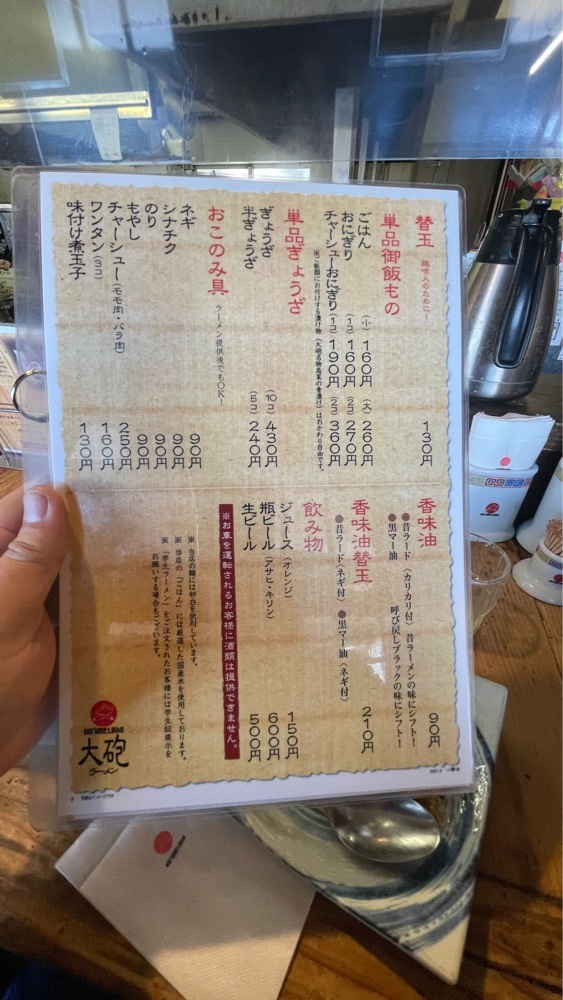 替玉 麺喰人のために! 130円
単品御飯もの
ごはん (小) 160円 (大) 260円
おにぎり (1コ) 160円 (2コ) 270円
チャーシューおにぎり (1コ) 190円 (2コ) 360円
※ご飯類にお付けする漬け物(大砲名物高菜の青漬け)はおかわり自由です。
単品ぎょうざ
ぎょうざ (10コ) 430円
半ぎょうざ (5コ) 240円
おこのみ具 ラーメン提供後でもOK!
ネギ 90円
シナチク 90円
のり 90円
もやし 90円
チャーシュー(モモ肉・バラ肉) 250円
ワンタン(3コ) 160円
味付け煮玉子 130円
香味油 90円
●昔ラード 〈カリカリ付〉 昔ラーメンの味にシフト!
●黒マー油 呼び戻しブラックの味にシフト!
香味油替玉 210円
●昔ラード〈ネギ付〉 ●黒マー油〈ネギ付〉
飲み物
ジュース(オレンジ) 150円
瓶ビール(アサヒ・キリン) 600円
生ビール 500円
※お車を運転されるお客様に酒類は提供できません。
※当店の麺には卵白を使用しています。
※当店の「ごはん」には厳選した国産米を使用しております。
※「学生ラーメン」をご注文されたお客様には学生証提示を
お願いする場合もございます。
KURUME LABO
大砲
ラーメン